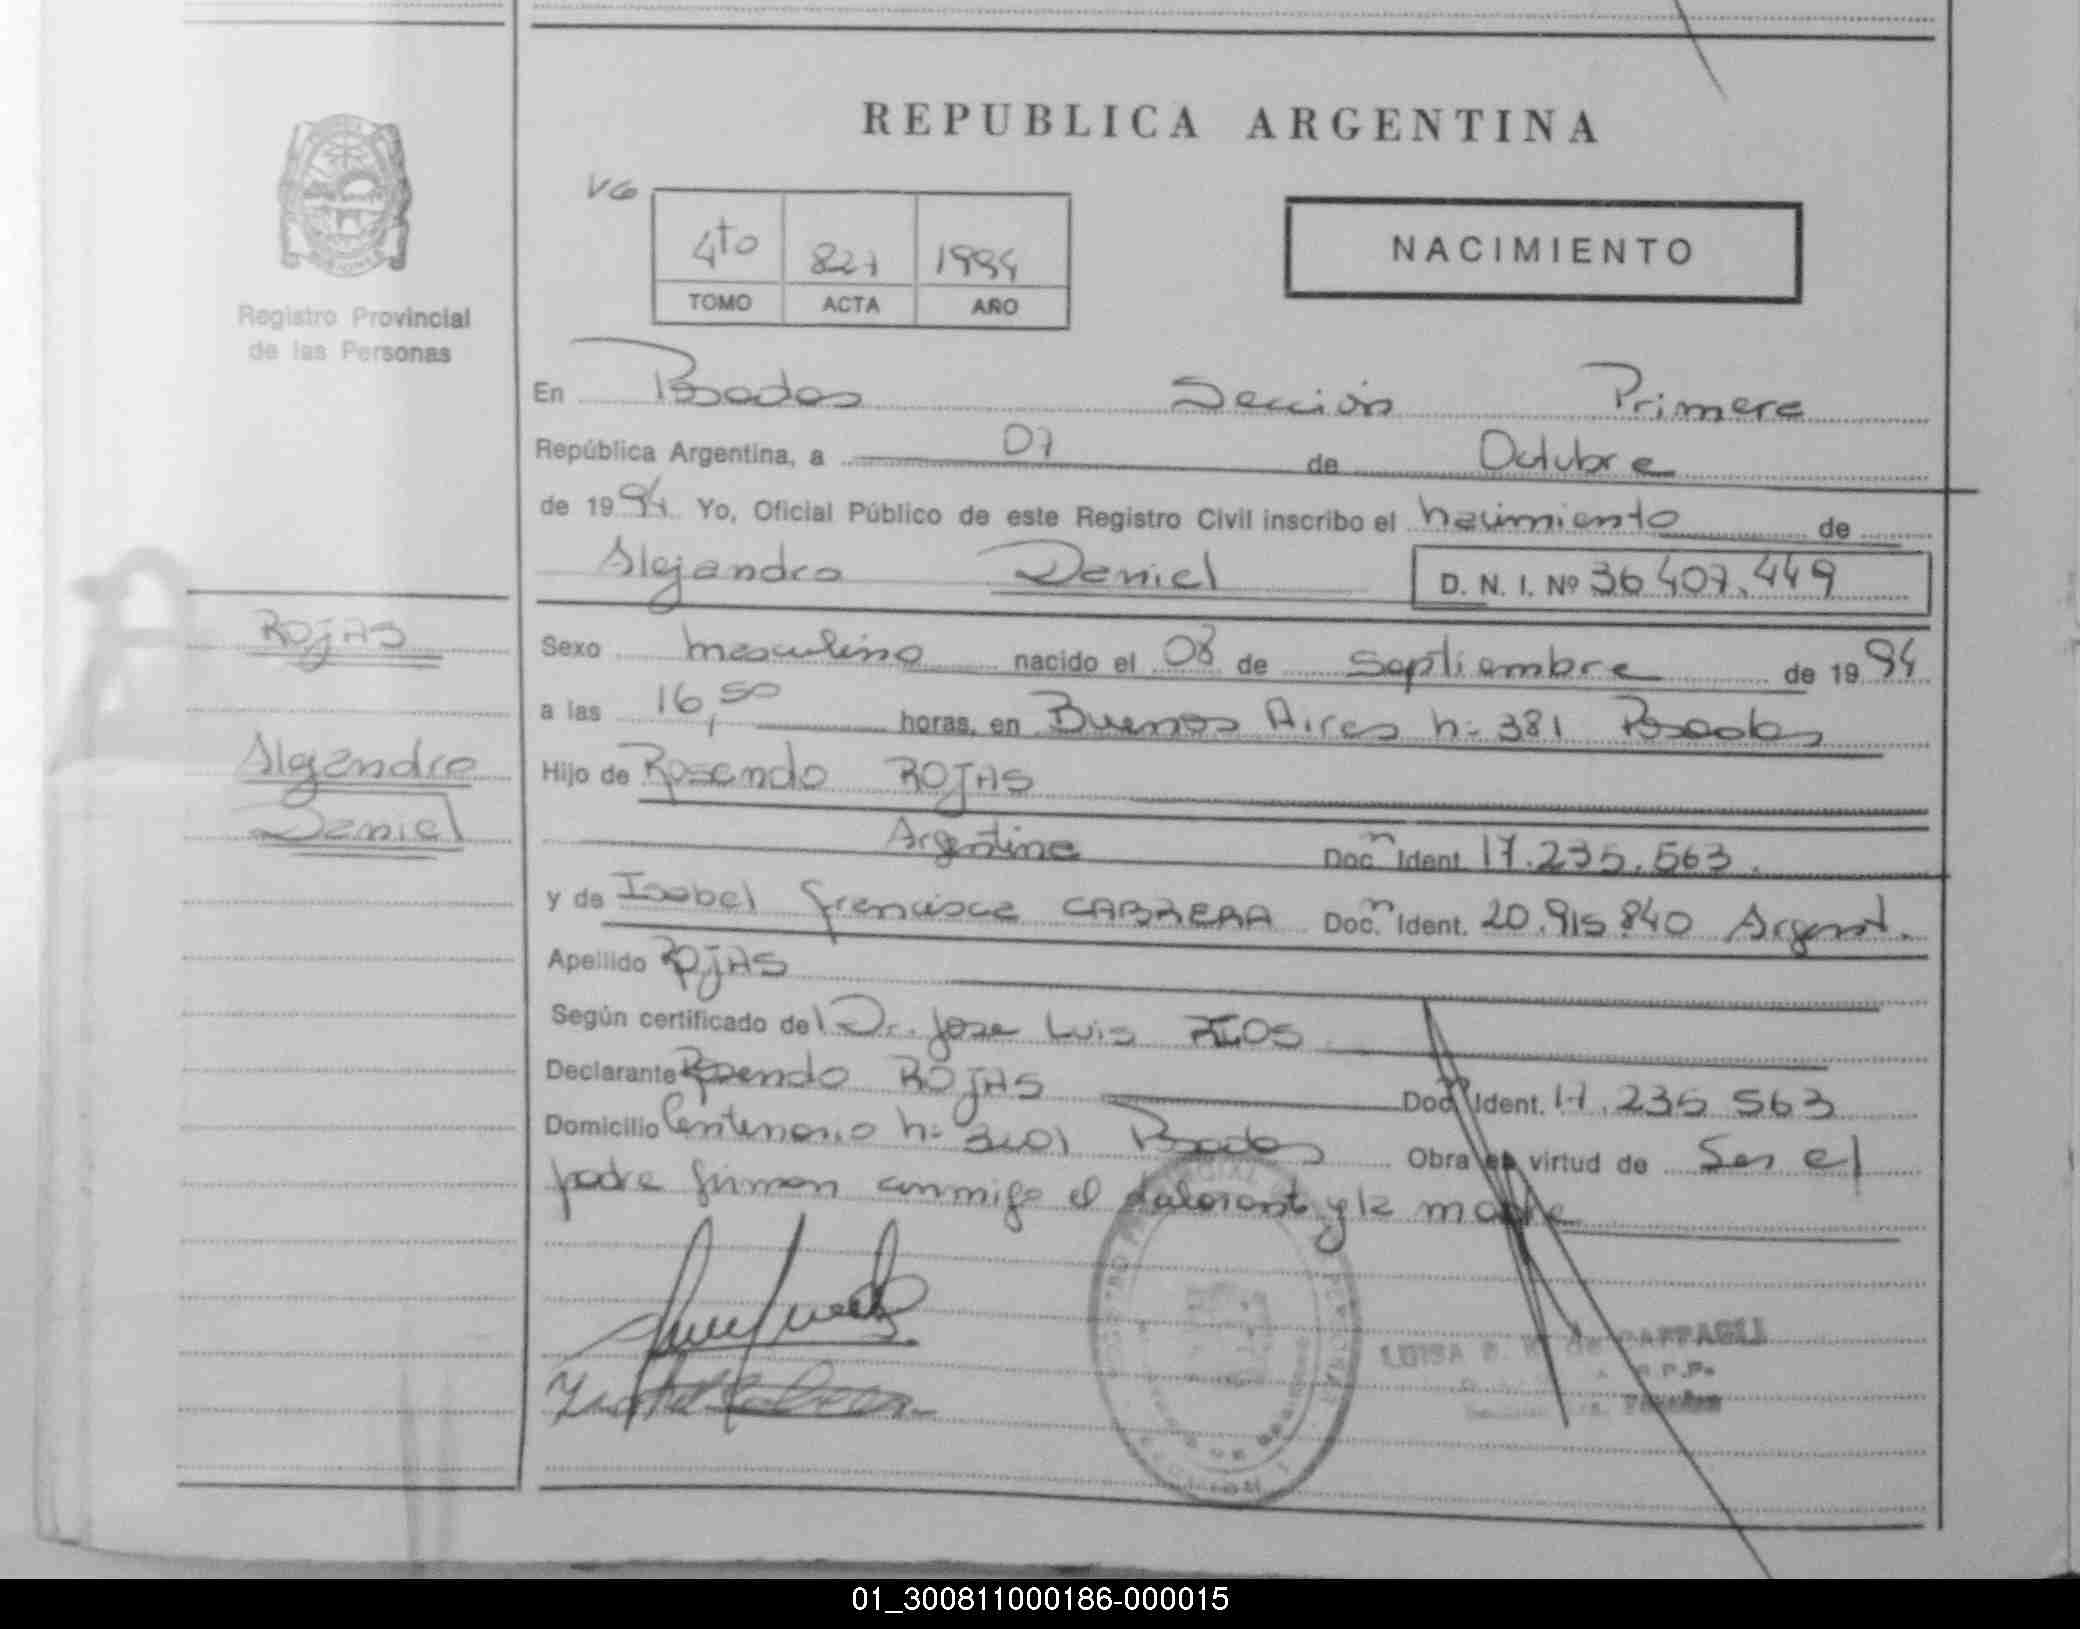 REPUBLICA ARGENTINA
NACIMIENTO
VG
4to 827 1994
TOMO ACTA AÑO
Registro Provincial
de las Personas
En Posadas Sección Primera
República Argentina, a 07 de Octubre
de 1994 Yo, Oficial Público de este Registro Civil inscribo el nacimiento de
Alejandro Daniel D. N. I. Nº 36.407.449
ROJAS
Alejandro
Daniel
Sexo masculino nacido el 08 de Septiembre de 1994
a las 16,50 horas, en Buenos Aires n= 381 Posadas
Hijo de Rosendo ROJAS
Argentino Doc.n Ident. 17.235.563.
y de Isabel Francisca CABRERA Doc.n Ident. 20.915.840 Argent.
Apellido ROJAS
Según certificado del Dr. Jose Luis RIOS
Declarante Rosendo ROJAS Doc.n Ident. 17.235 563
Domicilio Centenario n= 3401 Posadas Obra en virtud de Ser el
padre firman conmigo el declarant y la madre
LUISA
R.P.P.
01_300811000186-000015